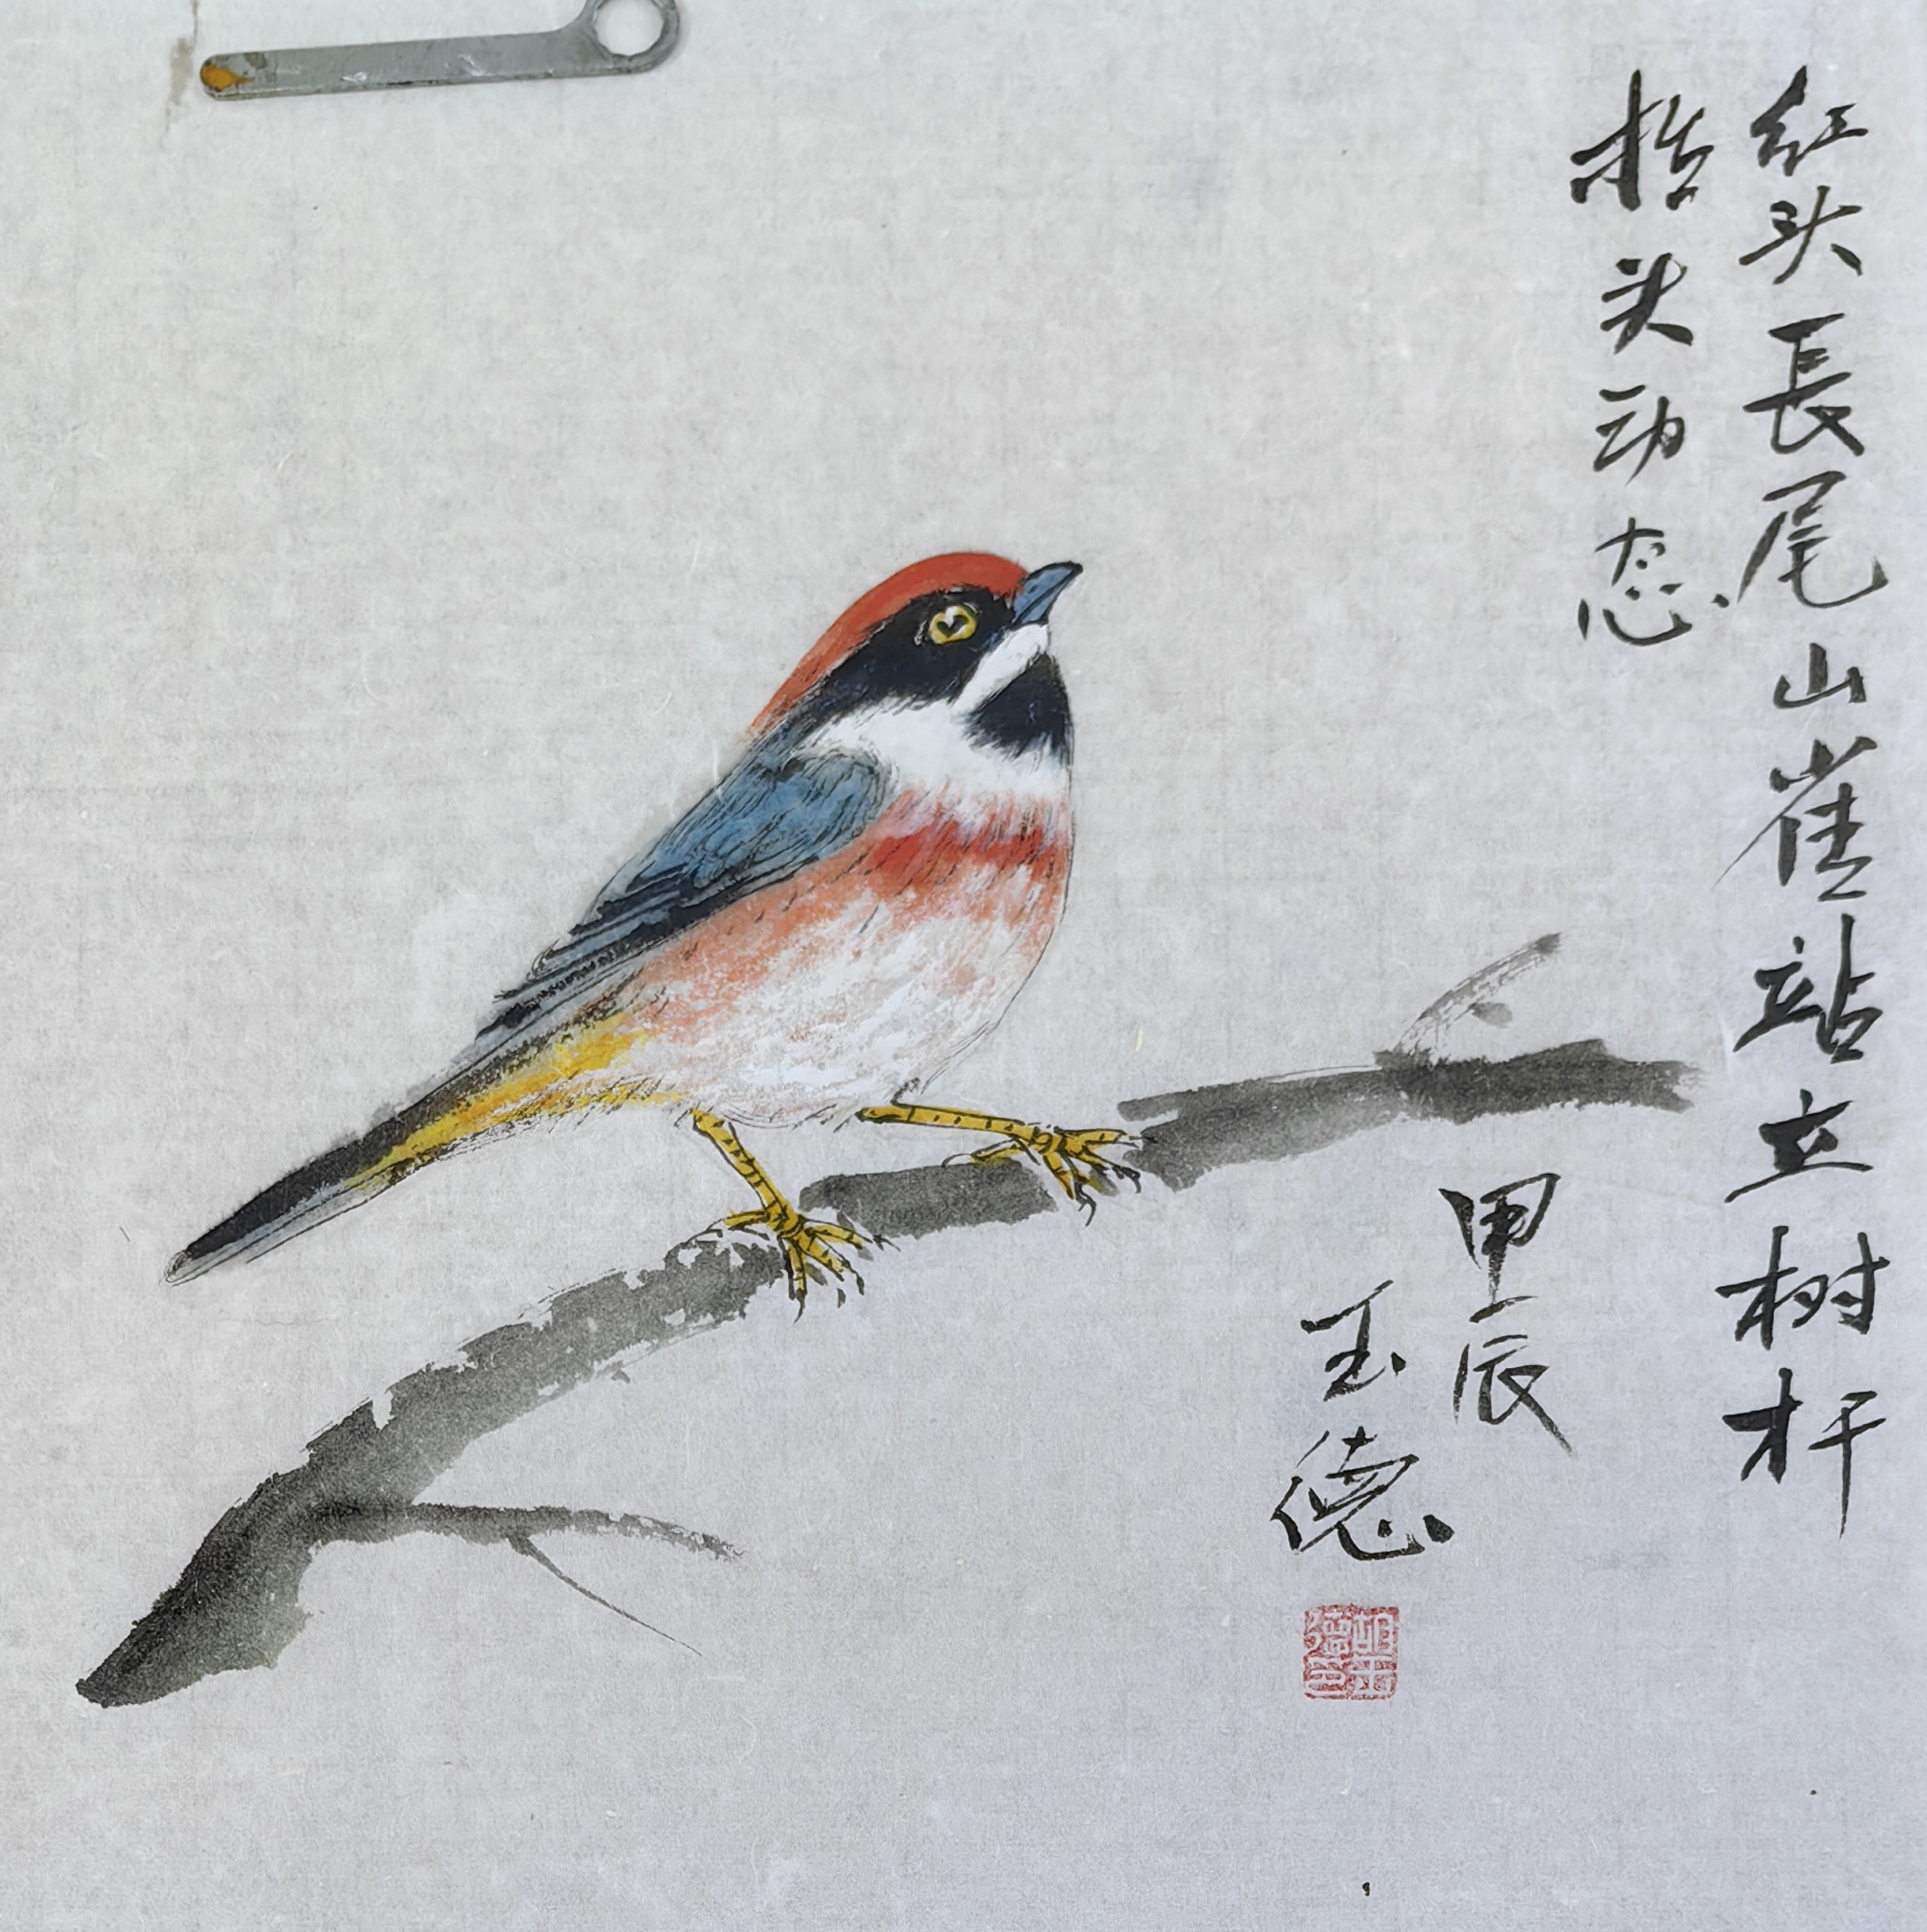 红头長尾山雀站立树杆
抬头动态
甲辰
玉德